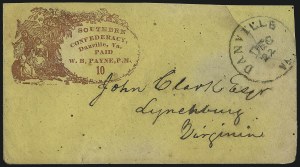 SOUTHERN
CONFEDERACY,
Danville, Va.
PAID
W. B. PAYNE, P.M.
10
DANVILLE VA.
DEC
22
John Clark Esqr
Lynchburg
Virginia